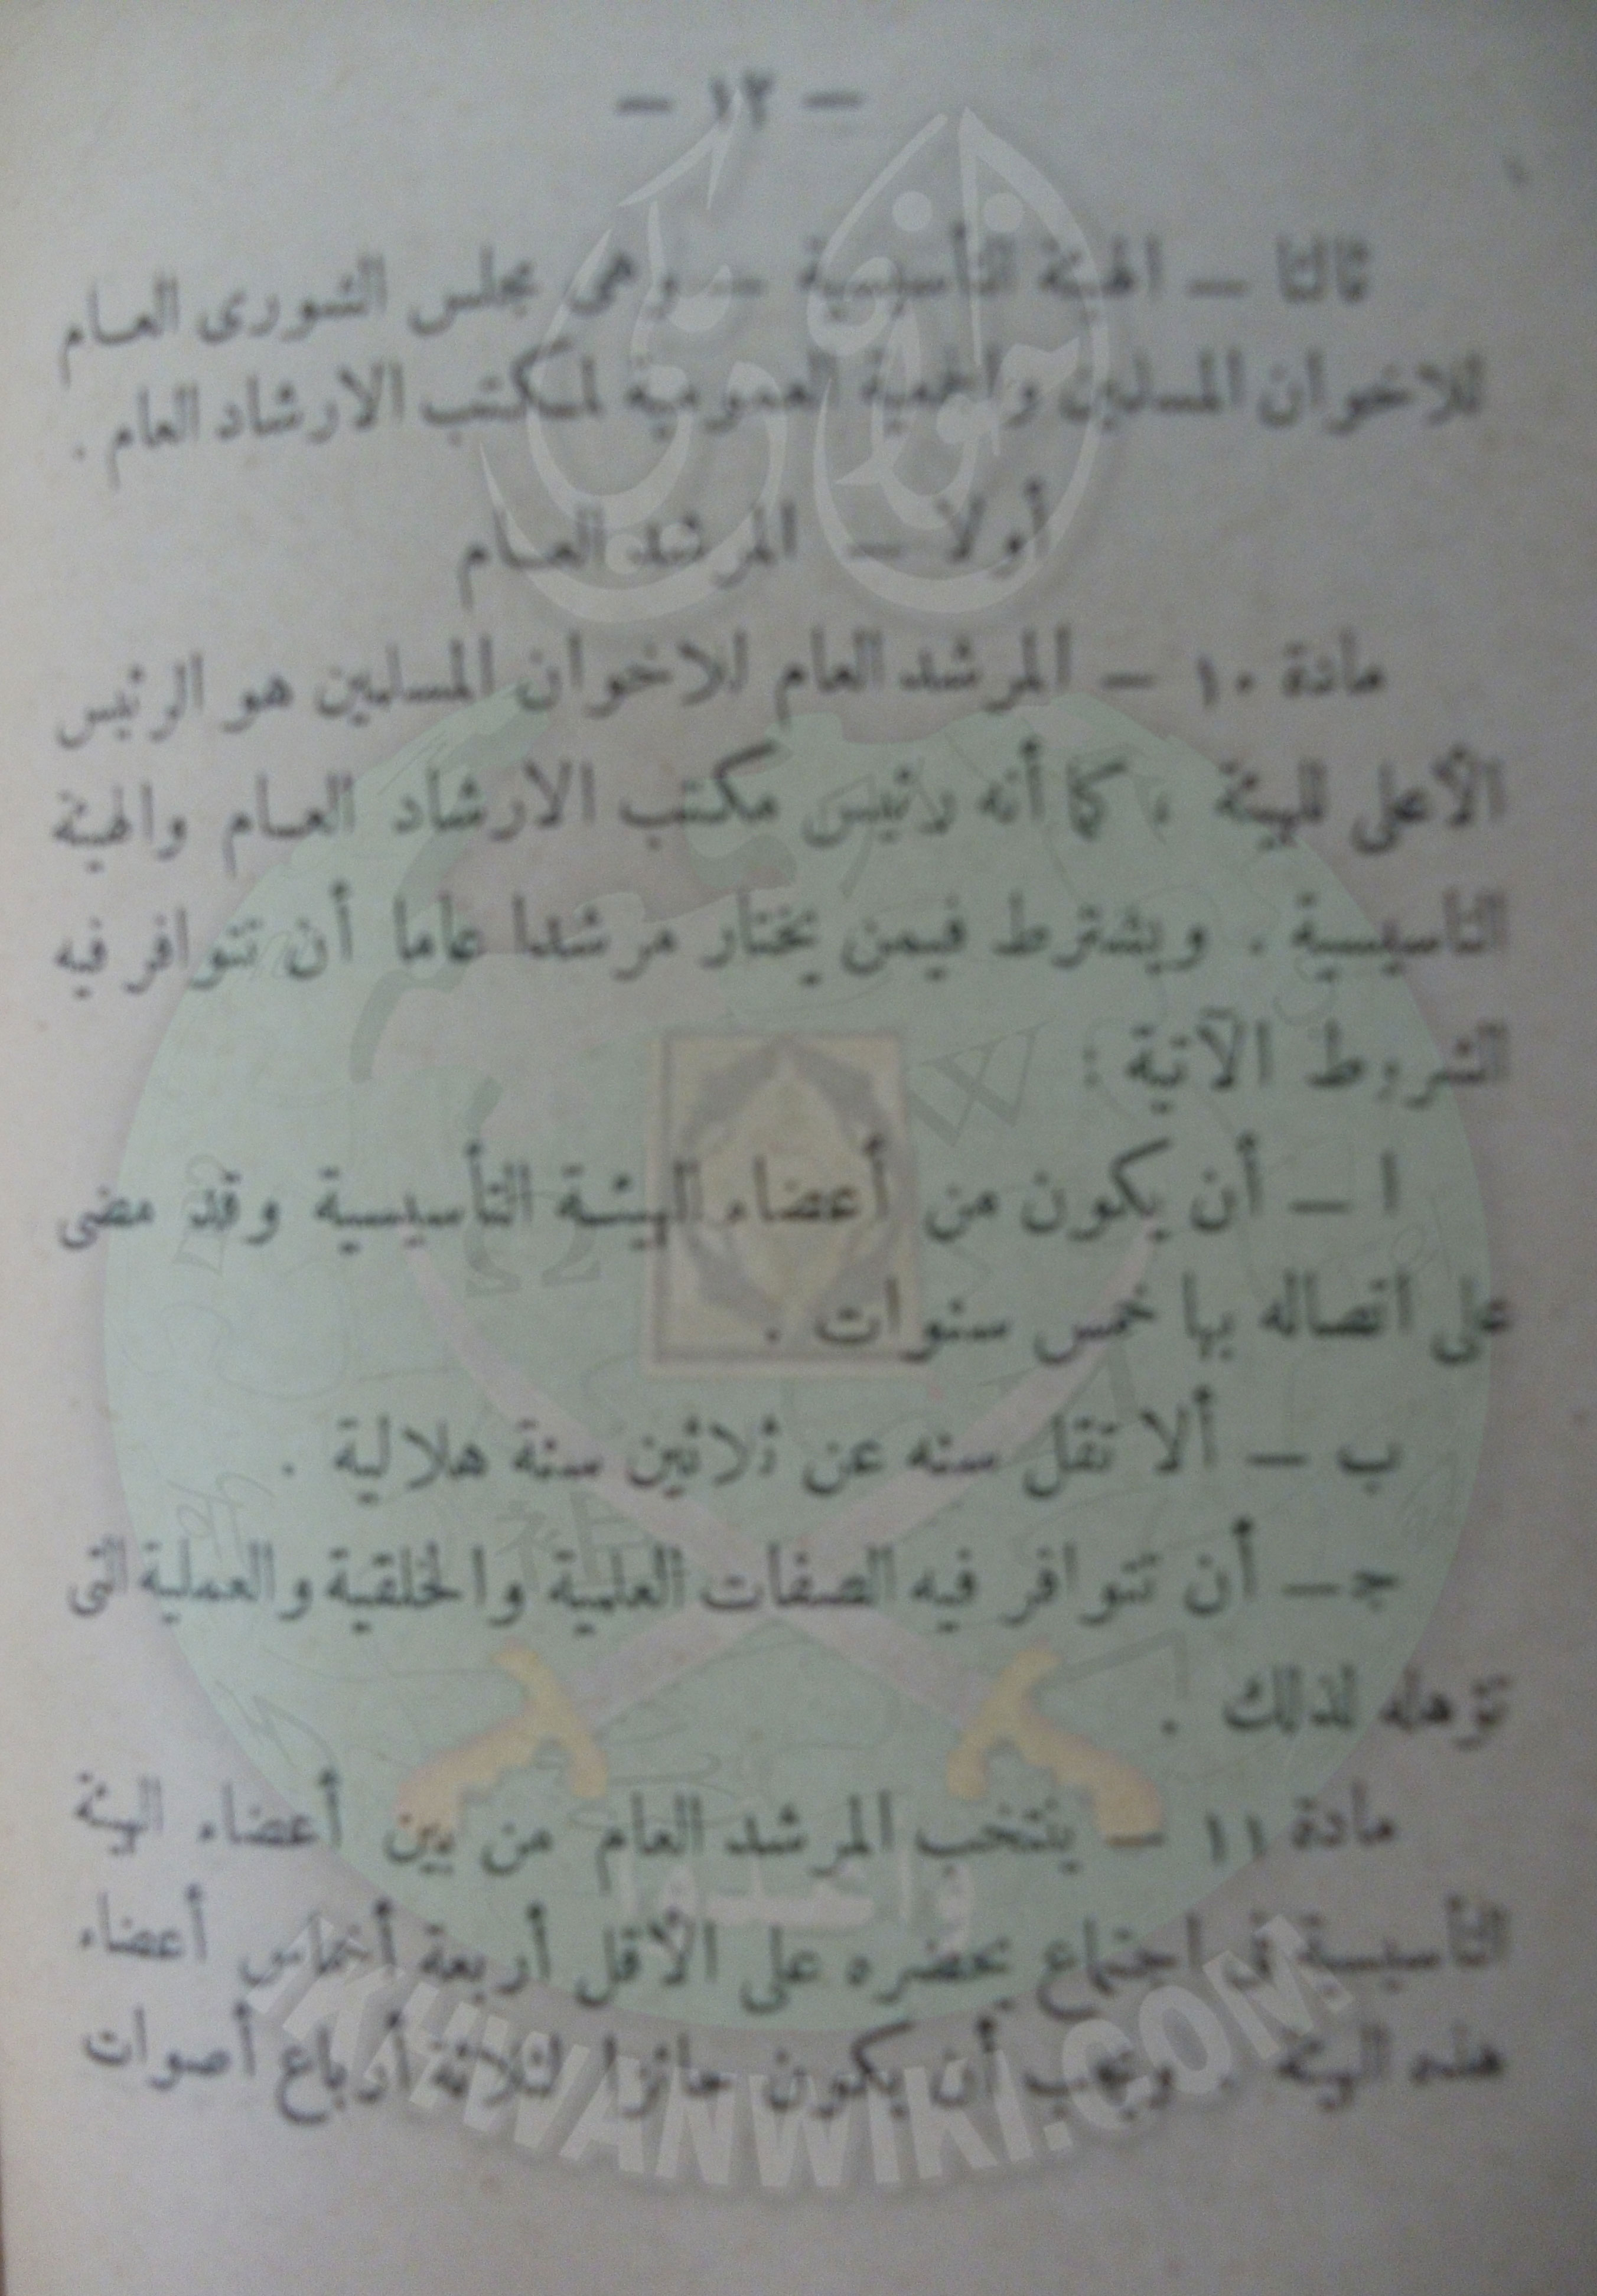 — ١٢ —
ثالثا — الهيئة التأسيسية — وهى مجلس الشورى العـام
للاخوان المسلمين والجمعية العمومية لمكتب الارشاد العام .
أولا — المرشد العـام
مادة ١٠ — المرشد العام للاخوان المسلمين هو الرئيس
الأعلى للهيئة ، كما أنه رئيس مكتب الارشاد العـام والهيئة
التأسيسية . ويشترط فيمن يختار مرشدا عاما أن تتوافر فيه
الشروط الآتية :
ا — أن يكون من أعضاء الهيئة التأسيسية وقد مضى
على اتصاله بها خمس سنوات .
ب — ألا تقل سنه عن ثلاثين سنة هلالية .
جـ — أن تتوافر فيه الصفات العلمية والخلقية والعملية التى
تؤهله لذلك .
مادة ١١ — ينتخب المرشد العام من بين أعضاء الهيئة
التأسيسية فى اجتماع يحضره على الأقل أربعة أخماس أعضاء
هذه الهيئة . ويجب أن يكون حائزا لثلاثة أرباع أصوات
إخوان
ويكي
وأعدوا
IKHWANWIKI.COM